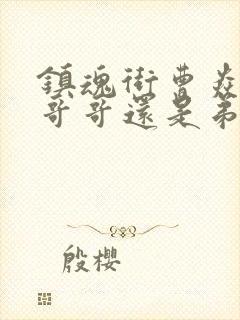 鎮魂街曹焱
哥哥還是弟
殷櫻